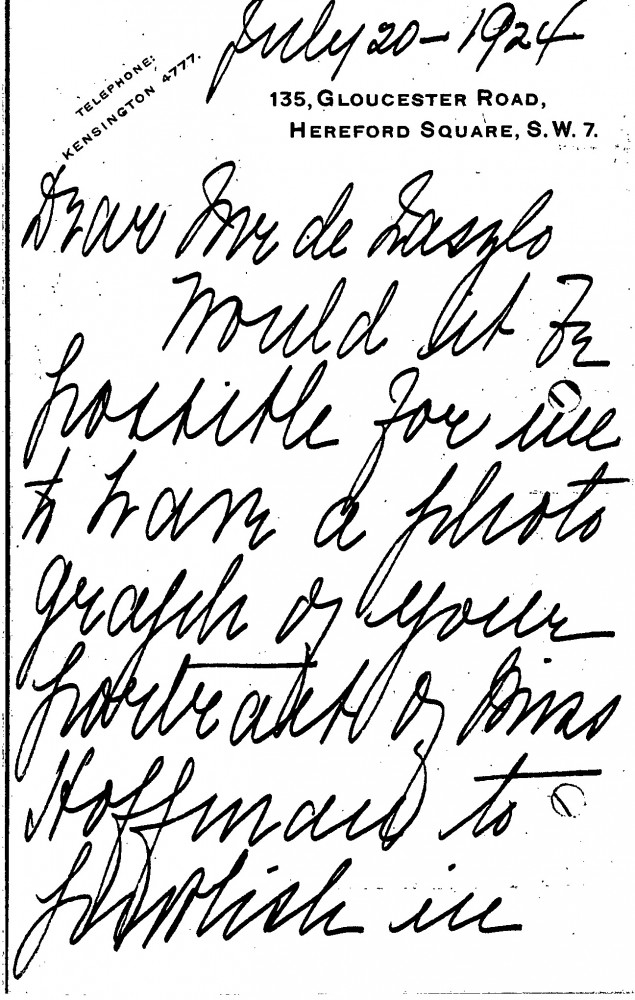 July 20 – 1924
TELEPHONE:
KENSINGTON 4777.
135, GLOUCESTER ROAD,
HEREFORD SQUARE, S.W. 7.
Dear Mr de Laszlo
Would it be
possible for me
to have a photo
graph of your
portrait of Miss
Hoffmann to
publish in